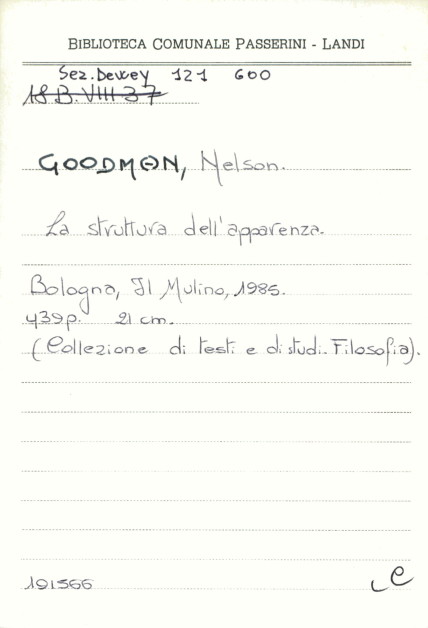 BIBLIOTECA COMUNALE PASSERINI - LANDI
Sez. Dewey 121 600
18 B. VIII 37
GOODMAN, Nelson.
La struttura dell'apparenza.
Bologna, Il Mulino, 1985.
439 p. 21 cm.
(Collezione di testi e di studi. Filosofia).
191566